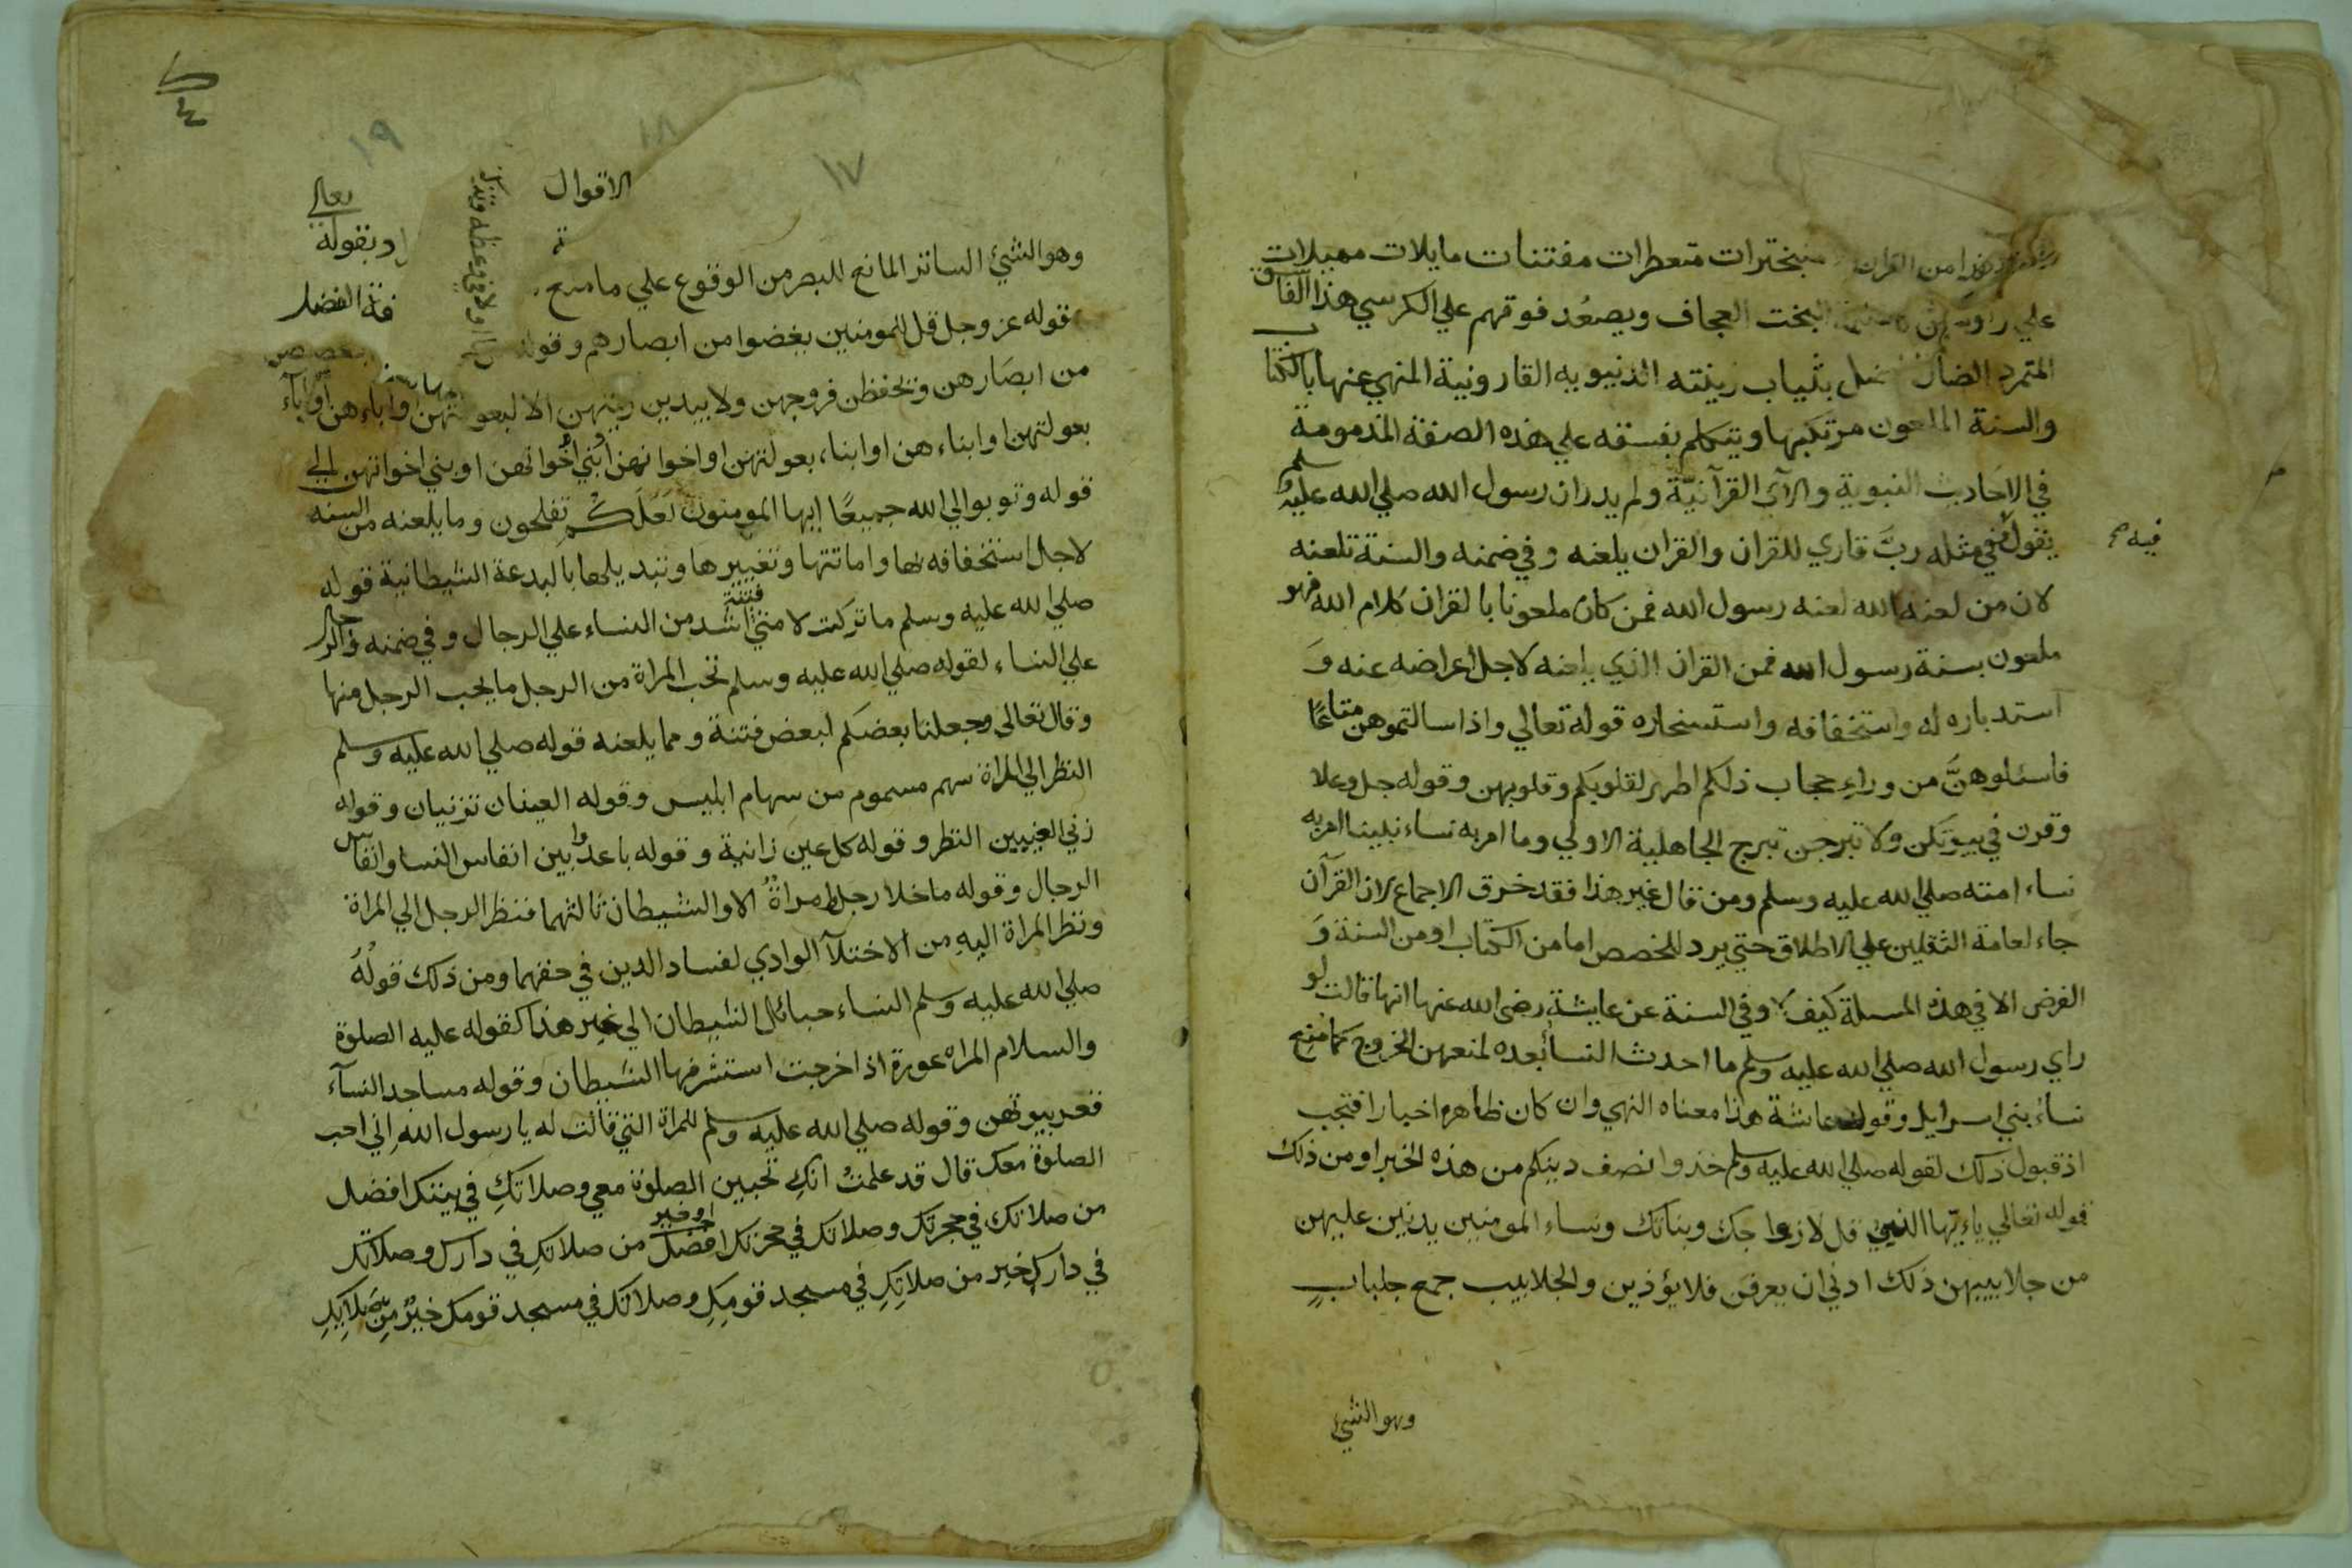 هذا من القران متبخترات متعطرات مفتنات مايلات مميلات
علي رؤسهن البخت العجاف ويصعُد فوقهم علي الكرسي هذا الفاسق
المتمرد الضال بثياب زينته الدنيويه القارونية المنهي عنها بالكتاب
والسنة الملعون مرتكبها ويتكلم بفسقه علي هذه الصفة المذمومة
في الاحاديث النبوية والآي القرآنيّة ولم يدر ان رسول الله صلي الله عليه وسلم
يقول في مثله ربَّ قاري للقران والقران يلعنه وفي ضمنه والسنة تلعنه
فيه صح
لان من لعنه الله لعنه رسول الله فمن كان ملعونا بالقران كلام الله فهو
ملعون بسنة رسول الله فمن القران الذي يلعنه لاجل اعراضه عنه وَ
استدباره له واستخفافه واستسخاره قوله تعالي واذا سالتموهن متاعًا
فاسئلوهنَّ من وراءِ حجاب ذلكم اطهر لقلوبكم وقلوبهن وقوله جل وعلا
وقرن في بيوتكن ولا تبرجن تبرج الجاهلية الاولي وما امر به نساء نبينا امر به
نساء امته صلي الله عليه وسلم ومن قال غير هذا فقد خرق الاجماع لان القرآن
جاء لعامة الثقلين علي الاطلاق حتي يرد المخصص اما من الكتاب او من السنة وَ
الفرض الا في هذه المسلة كيف لا وفي السنة عن عايشة رضي الله عنها انها قالت لو
راي رسول الله صلي الله عليه وسلم ما احدث النسأ بعده لمنعهن الخروج كما منع
نساء بني اسرايل وقول عائشة هذا معناه النهي وان كان ظاهره اخبارا فتجب
اذ قبول ذلك لقوله صلي الله عليه وسلم خذوا نصف دينكم من هذه الخبرا ومن ذلك
قوله تعالي ياءيّها النبي قل لازواجك وبناتك ونساء المومنين يدنين عليهن
من جلابيبهن ذلك ادني ان يعرفن فلا يؤذين والجلابيب جمع جلبابٍ
وهو الشيئ
١٧
١٨
١٩
الاقوال
تعالي
بقوله
وهو الشيئ الساتر المانع للبصر من الوقوع علي ما
قوله عز وجل قل للمومنين يغضوا من ابصارهم وقوله
من ابصَارهن ويحفظن فروجهن ولا يبدين زينتهن الا لبعولتهن او اباءهن او آباء
بعولتهن او ابناءهن او ابناء بعولتهن او اخوانهن او بني اخوانهن او بني اخواتهن الي
قوله وتوبوا الي الله جميعًا ايها المومنون لَعَلّكُم تفلحون وما يلعنه من السنه
لاجل استخفافه بها واماتتها وتغييرها وتبديلها بالبدعة الشيطانية قوله
صلي الله عليه وسلم ما تركت لامتي فتنة اشد من النساء علي الرجال وفي ضمنه والرجال
علي النساء لقوله صلي الله عليه وسلم تحب المراة من الرجل ما يحب الرجل منها
وقال تعالي وجعلنا بعضكم لبعض فتنة ومما يلعنه قوله صلي الله عليه وسلم
النظر الي المراة سهم مسموم من سهام ابليس وقوله العينان تزنيان وقوله
زني العينين النظر وقوله كل عين زانية وقوله باعدوا بين انفاس النسا وانفاس
الرجال وقوله ما خلا رجل بامراةٌ الا والشيطان ثالثهما فنظر الرجل الي المراة
ونظر المراة اليه من الاختلآ الوادي لفساد الدين في حقهما ومن ذلك قولُهُ
صلي الله عليه وسلم النساء حبائل الشيطان الي غير هذا كقوله عليه الصلوة
والسلام المراه عورة اذا خرجت استشرفها الشيطان وقوله مساجد النسآء
قعر بيوتهن وقوله صلي الله عليه وسلم للمراة التي قالت له يا رسول اللهِ اِني احب
الصلوة معك قال قد علمتُ انكِ تحبين الصلوة معي وصلاتكِ في بيتك افضل
من صلاتك في حجرتك وصلاتك في حجرتك افضل او خير من صلاتكِ في دارك وصلاتك
في داركِ خير من صلاتِكِ في مسجد قومِكِ وصلاتك في مسجد قومك خيرٌ مِن صَلاتِكِ